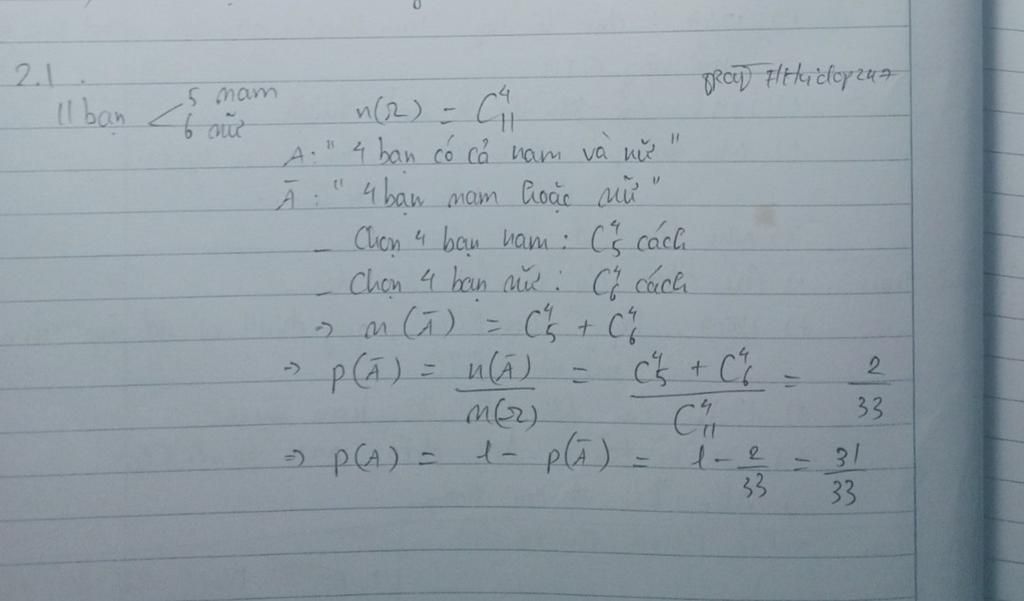 2.1.
11 bạn < 5 nam
6 nữ
n(Ω) = C₁₁⁴
A: " 4 bạn có cả nam và nữ "
Ā : " 4 bạn nam hoặc nữ "
_ Chọn 4 bạn nam : C₅⁴ cách
_ Chọn 4 bạn nữ : C₆⁴ cách
=> n(Ā) = C₅⁴ + C₆⁴
=> P(Ā) = n(Ā) / n(Ω) = (C₅⁴ + C₆⁴) / C₁₁⁴ = 2/33
=> P(A) = 1 - P(Ā) = 1 - 2/33 = 31/33